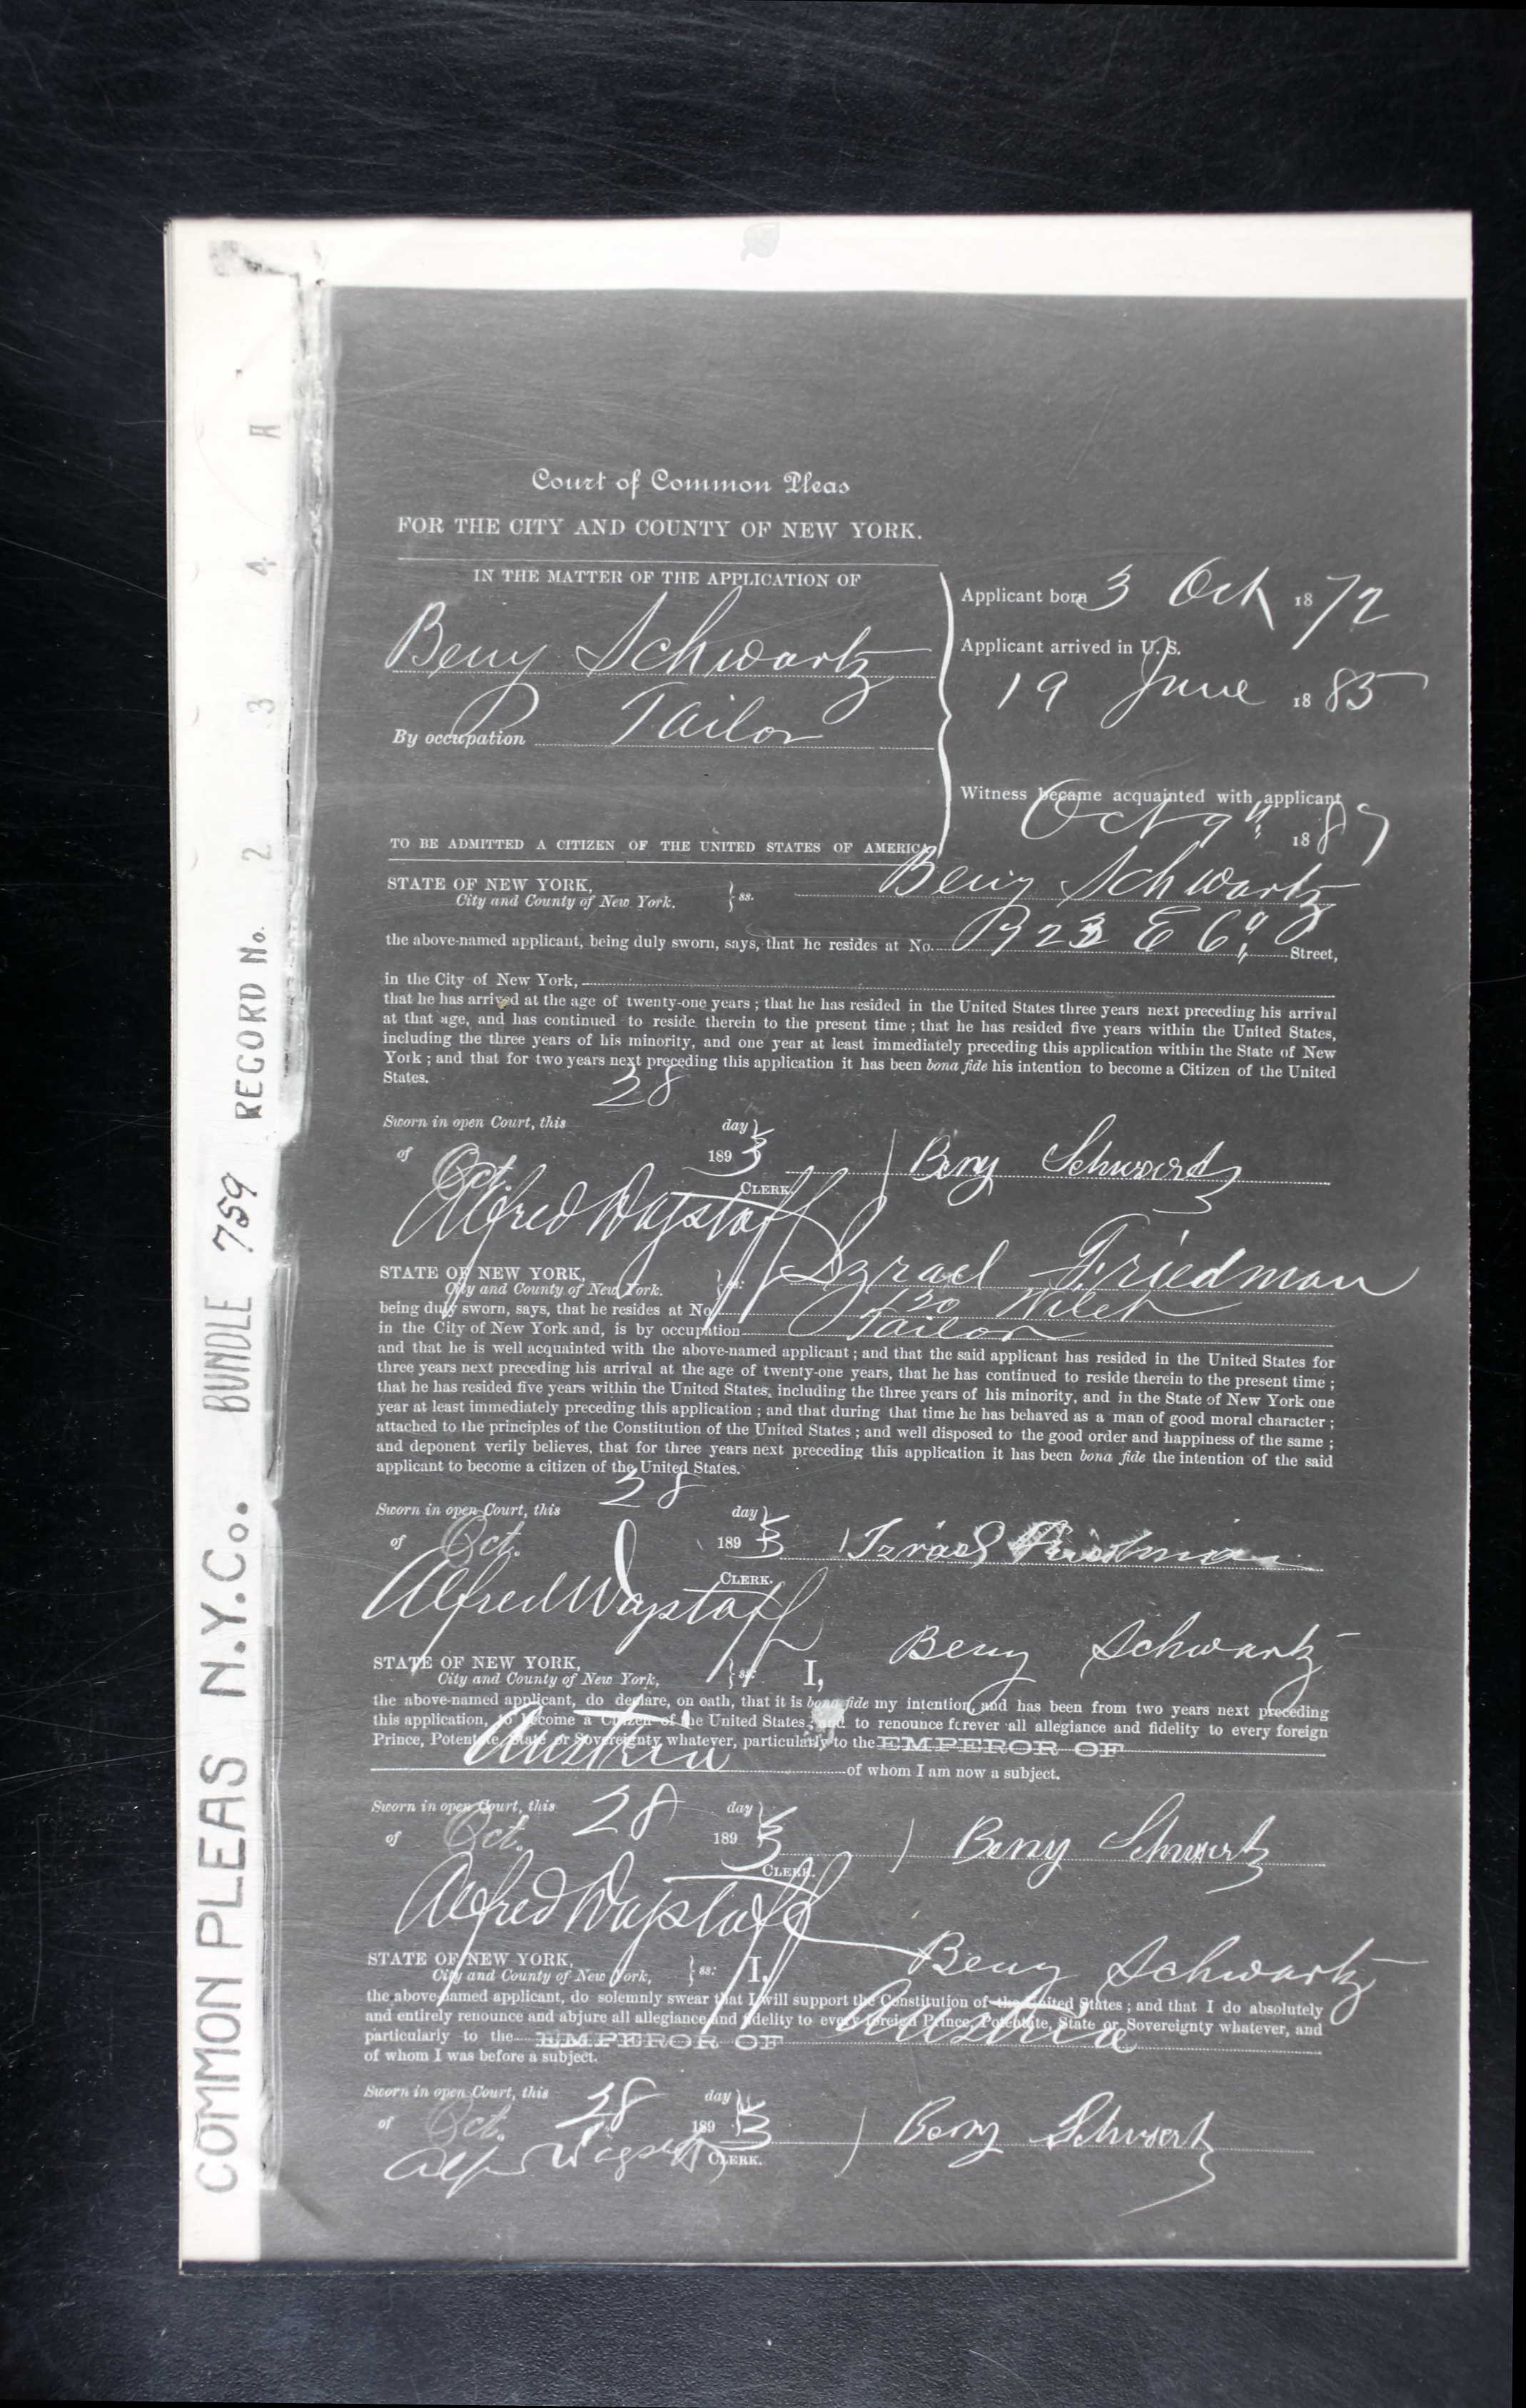 COMMON PLEAS N.Y.Co. BUNDLE 759 RECORD No. 2 3 4 A
Court of Common Pleas
FOR THE CITY AND COUNTY OF NEW YORK.
IN THE MATTER OF THE APPLICATION OF
Beny Schwartz
By occupation Tailor
TO BE ADMITTED A CITIZEN OF THE UNITED STATES OF AMERICA
Applicant born 3 Oct 1872
Applicant arrived in U.S.
19 June 1885
Witness became acquainted with applicant
Oct 1889
STATE OF NEW YORK, Beny Schwartz
City and County of New York. ss.
the above-named applicant, being duly sworn, says, that he resides at No. 323 E 6th Street,
in the City of New York,
that he has arrived at the age of twenty-one years; that he has resided in the United States three years next preceding his arrival
at that age, and has continued to reside therein to the present time; that he has resided five years within the United States,
including the three years of his minority, and one year at least immediately preceding this application within the State of New
York; and that for two years next preceding this application it has been bona fide his intention to become a Citizen of the United
States.
Sworn in open Court, this 28 day
of Oct. 189 Beny Schwartz
Alfred Wagstaff CLERK.
STATE OF NEW YORK, Izrael Friedman
City and County of New York. ss:
being duly sworn, says, that he resides at No. 120 Willet
in the City of New York and, is by occupation Tailor
and that he is well acquainted with the above-named applicant; and that the said applicant has resided in the United States for
three years next preceding his arrival at the age of twenty-one years, that he has continued to reside therein to the present time;
that he has resided five years within the United States, including the three years of his minority, and in the State of New York one
year at least immediately preceding this application; and that during that time he has behaved as a man of good moral character;
attached to the principles of the Constitution of the United States; and well disposed to the good order and happiness of the same;
and deponent verily believes, that for three years next preceding this application it has been bona fide the intention of the said
applicant to become a citizen of the United States.
Sworn in open Court, this 28 day
of Oct. 189 Izrael Friedman
Alfred Wagstaff CLERK.
STATE OF NEW YORK, Beny Schwartz
City and County of New York, ss: I,
the above-named applicant, do declare, on oath, that it is bona fide my intention, and has been from two years next preceding
this application, to become a Citizen of the United States; and to renounce forever all allegiance and fidelity to every foreign
Prince, Potentate, State or Sovereignty whatever, particularly to the EMPEROR OF
Austria of whom I am now a subject.
Sworn in open Court, this 28 day
of Oct. 189 Beny Schwartz
Alfred Wagstaff CLERK.
STATE OF NEW YORK, Beny Schwartz
City and County of New York, ss: I,
the above-named applicant, do solemnly swear that I will support the Constitution of the United States; and that I do absolutely
and entirely renounce and abjure all allegiance and fidelity to every foreign Prince, Potentate, State or Sovereignty whatever, and
particularly to the EMPEROR OF Austria
of whom I was before a subject.
Sworn in open Court, this 28 day
of Oct. 189 Beny Schwartz
Alfred Wagstaff CLERK.